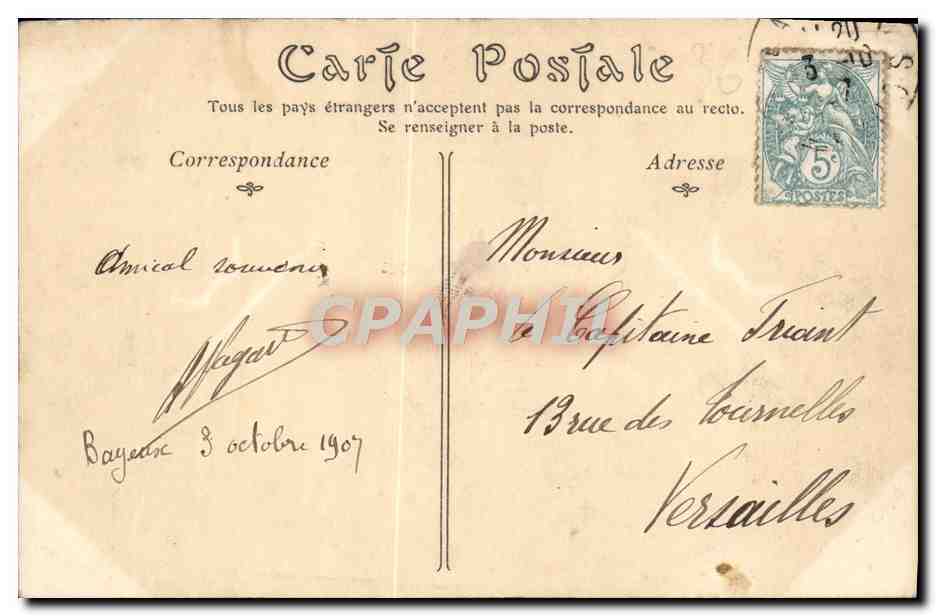 Carte Postale
Tous les pays étrangers n'acceptent pas la correspondance au recto.
Se renseigner à la poste.
Correspondance
Adresse
5c
POSTES
Amical souvenir
Bayeux 3 octobre 1907
Monsieur
le Capitaine Triant
13 rue des Tournelles
Versailles
CPAPHIL